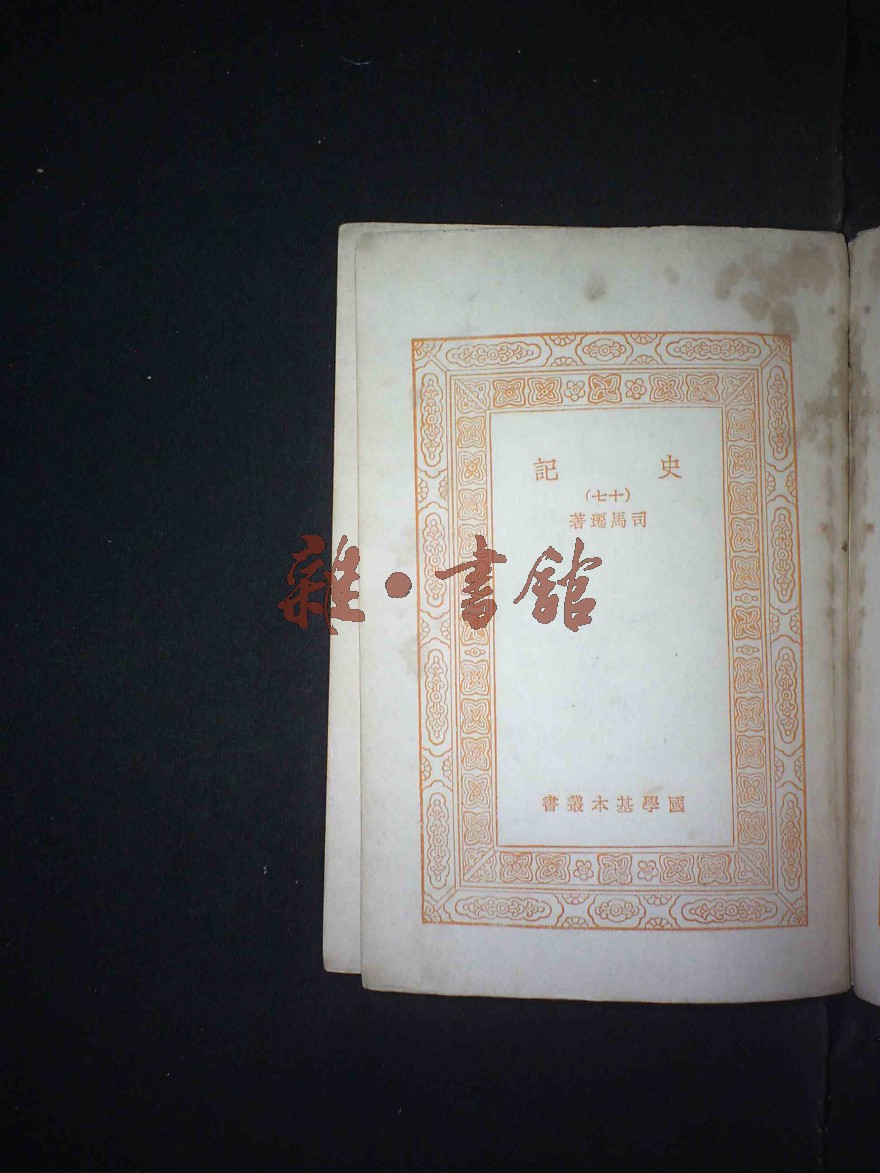 史記
(十七)
司馬遷著
雜·書館
國學基本叢書